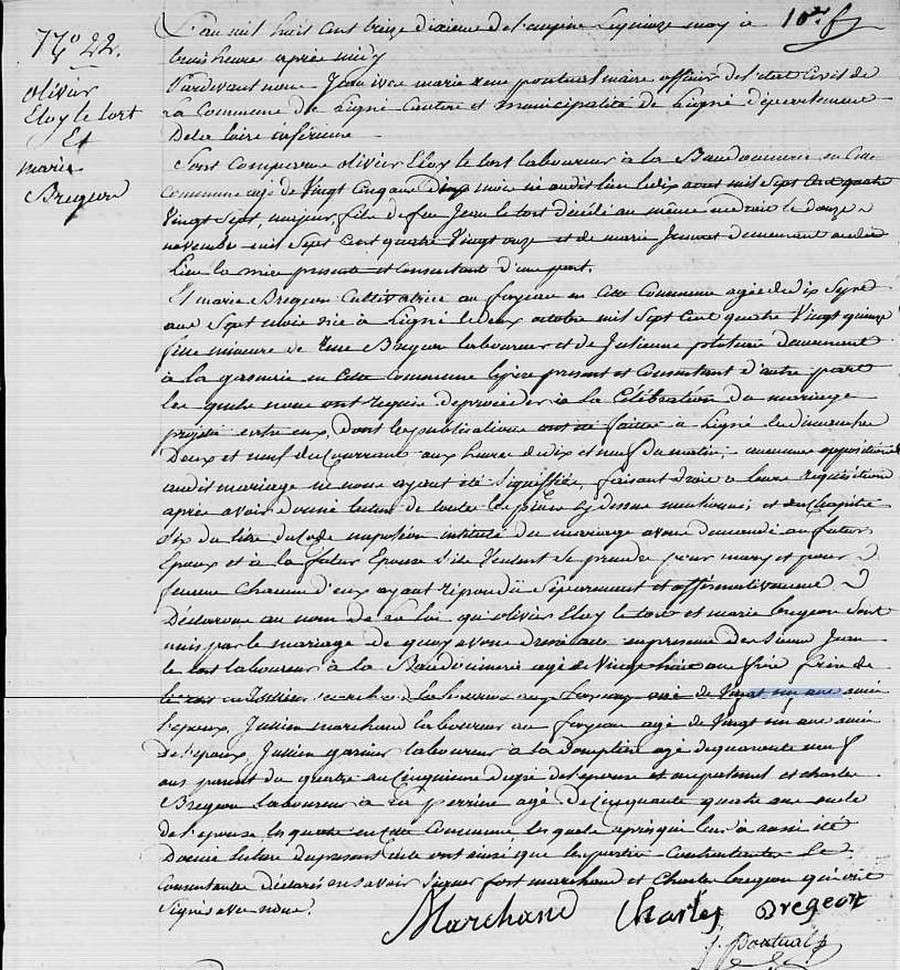 N.º 22.
olivier
Eloy le tort
Et
marie
Bregeon
L'an mil huit Cent treize dixieme de l'empire Le quinze may à
trois heure après midy
Pardevant nous Jean ives marie rene pontual maire officier de l'etat Civil de
La Commune de Ligné Canton et municipalité de Ligné département
De la loire inférieure
Sont Comparrus olivier Eloy le tort laboureur à la Baudouinerie en Cette
Commune agé de Vingt Cinq ans mois né audit lieu le dix aout mil Sept Cent quatre
Vingt Sept, majeur, fils de feu Jean le tort décédé au même endroit le douze
novembre mil Sept Cent quatre Vingt onze et de marie demeurant audit
Lieu la mère presente et Consentante d'une part.
Et marie Bregeon Cultivatrice au foyeau en Cette Commune agée de dix Sept
ans Sept mois née à Ligné le deux octobre mil Sept Cent quatre Vingt quinze
fille mineure de rene Bregeon laboureur et de Julienne demeurant
à la en Cette Commune le père present et Consentant d'autre part
Les quels nous ont requis de procéder à la Célébration du mariage
projetté entre eux, dont les publications ont été faites à Ligné les dimanches
Deux et neuf du Courrant aux heures de dix et neuf du matin, aucunne opposition
audit mariage ne nous ayant été Signiffiée, faisant droit à leurs requisition
après avoir donné lecture de toutes les pièces cy dessus mentionné, et du Chapitre
Six du titre du Code impérial intitulé du mariage avons demandé au futur
Epoux et à la futur Epouse S'ils Veulent Se prendre pour mary et pour
femme Chacun d'eux ayant répondû Séparément et affirmativement
Déclarons au nom de La loi, qu'olivier Eloy le tort et marie bregeon Sont
unis par le mariage de quoy avons dressé acte en presence des Sieurs Jean
le tort laboureur à la Baudouinerie agé de Vingt huit ans frère de
de Vingt un ans ami
l'epoux, Julien marchand laboureur au foyeau agé de Vingt un ans ami
De l'epoux, Julien garnier laboureur à la agé de quarante neuf
ans parent du quatre au Cinquieme degré de l'epouse et Charles
Bregeon laboureur à La perrine agé de Cinquante quatre ans oncle
de l'epouse les quatre en Cette Commune les quels après qu'il leur à aussi été
Donné lecture du present acte ont ainsi que les parties Contractantes Les
Consentants déclarés ne Savoir Signer fort marchand et Charles bregeon qui ont
Signés avec nous.
Marchand Charles Bregeon
J. pontual